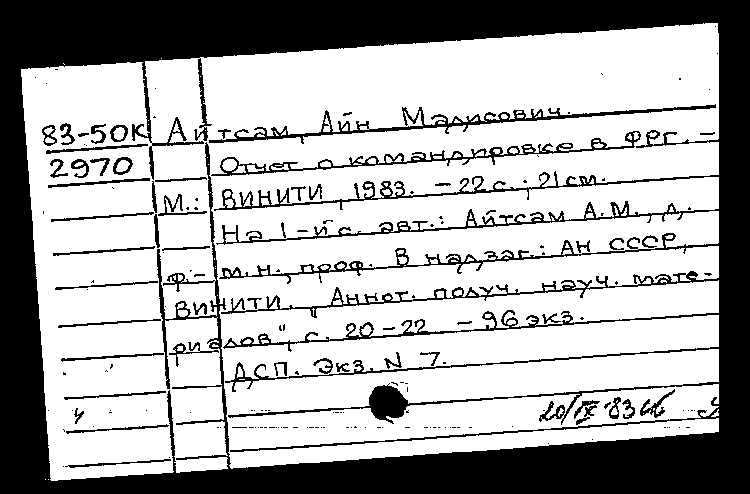 83-50К Айтсам, Айн Мадисович.
2970 Отчет о командировке в ФРГ. –
М.: ВИНИТИ, 1983. – 22 с.; 21 см.
На 1-й с. авт.: Айтсам А.М., д.
ф.-м.н., проф. В надзаг.: АН СССР,
ВИНИТИ. "Аннот. получ. науч. мате-
риалов", с. 20-22 – 96 экз.
ДСП. Экз. N 7.
ч 20/IX-83